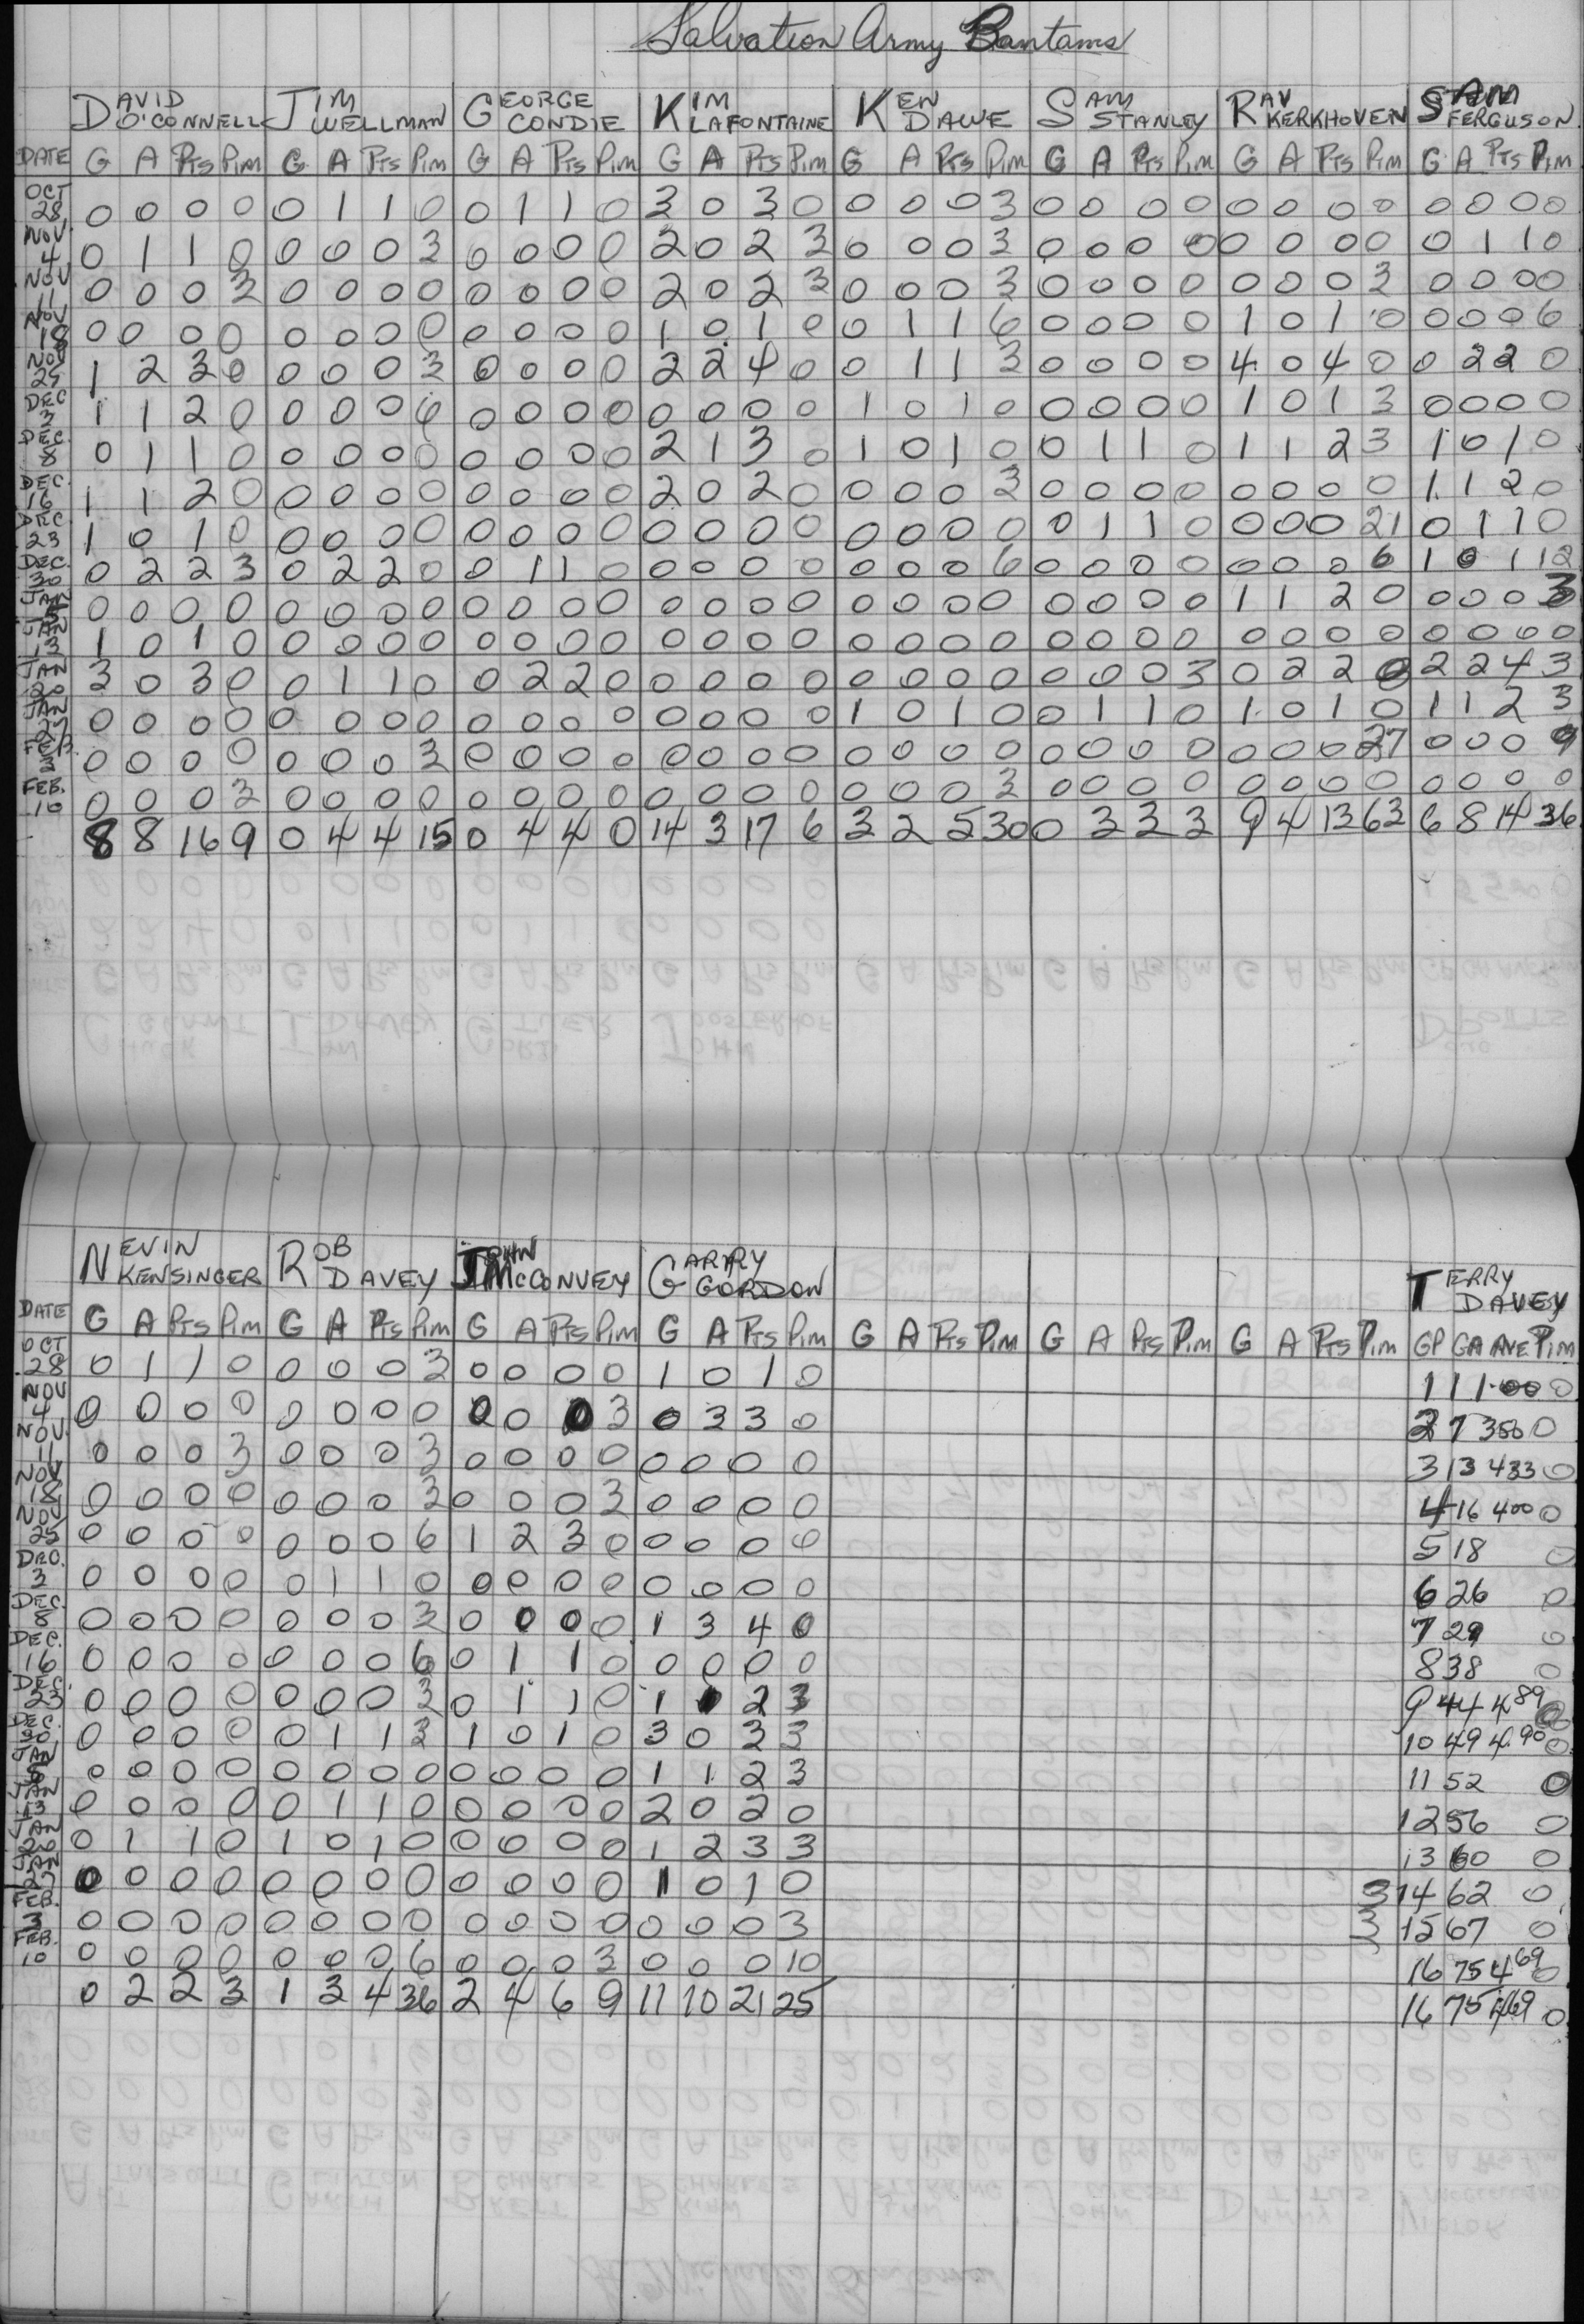 Salvation Army Bantams
DAVID O'CONNELL JIM WELLMAN GEORGE CONDIE KIM LAFONTAINE KEN DAWE SAM STANLEY RAY KERKHOVEN SAM FERGUSON
DATE G A Pts Pim G A Pts Pim G A Pts Pim G A Pts Pim G A Pts Pim G A Pts Pim G A Pts Pim G A Pts Pim
OCT 28 0 0 0 0 0 1 1 0 0 1 1 0 3 0 3 0 0 0 0 3 0 0 0 0 0 0 0 0 0 0 0 0
NOV. 4 0 1 1 0 0 0 0 3 0 0 0 0 2 0 2 3 0 0 0 3 0 0 0 0 0 0 0 0 0 1 1 0
NOV 11 0 0 0 3 0 0 0 0 0 0 0 0 2 0 2 3 0 0 0 3 0 0 0 0 0 0 0 3 0 0 0 0
NOV 18 0 0 0 0 0 0 0 0 0 0 0 0 1 0 1 0 0 1 1 6 0 0 0 0 1 0 1 0 0 0 0 6
NOV 25 1 2 3 0 0 0 0 3 0 0 0 0 2 2 4 0 0 1 1 3 0 0 0 0 4 0 4 0 0 2 2 0
DEC 3 1 1 2 0 0 0 0 6 0 0 0 0 0 0 0 0 1 0 1 0 0 0 0 0 1 0 1 3 0 0 0 0
DEC. 8 0 1 1 0 0 0 0 0 0 0 0 0 2 1 3 0 1 0 1 0 0 1 1 0 1 1 2 3 1 0 1 0
DEC. 16 1 1 2 0 0 0 0 0 0 0 0 0 2 0 2 0 0 0 0 3 0 0 0 0 0 0 0 0 1 1 2 0
DEC. 23 1 0 1 0 0 0 0 0 0 0 0 0 0 0 0 0 0 0 0 0 0 1 1 0 0 0 0 21 0 1 1 0
DEC. 30 0 2 2 3 0 2 2 0 0 1 1 0 0 0 0 0 0 0 0 6 0 0 0 0 0 0 0 6 1 0 1 12
JAN 0 0 0 0 0 0 0 0 0 0 0 0 0 0 0 0 0 0 0 0 0 0 0 0 1 1 2 0 0 0 0 3
JAN 13 1 0 1 0 0 0 0 0 0 0 0 0 0 0 0 0 0 0 0 0 0 0 0 0 0 0 0 0 0 0 0 0
JAN 20 3 0 3 0 0 1 1 0 0 2 2 0 0 0 0 0 0 0 0 0 0 0 0 3 0 2 2 0 2 2 4 3
JAN 27 0 0 0 0 0 0 0 0 0 0 0 0 0 0 0 0 1 0 1 0 0 1 1 0 1 0 1 0 1 1 2 3
FEB. 3 0 0 0 0 0 0 0 3 0 0 0 0 0 0 0 0 0 0 0 0 0 0 0 0 0 0 0 27 0 0 0 9
FEB. 10 0 0 0 3 0 0 0 0 0 0 0 0 0 0 0 0 0 0 0 3 0 0 0 0 0 0 0 0 0 0 0 0
8 8 16 9 0 4 4 15 0 4 4 0 14 3 17 6 3 2 5 30 0 3 3 3 9 4 13 63 6 8 14 36
NEVIN KENSINGER ROB DAVEY JOHN McCONVEY GARRY GORDON TERRY DAVEY
DATE G A Pts Pim G A Pts Pim G A Pts Pim G A Pts Pim G A Pts Pim G A Pts Pim G A Pts Pim GP GA AVE Pim
OCT 28 0 1 1 0 0 0 0 3 0 0 0 0 1 0 1 0 1 1 1.00 0
NOV 4 0 0 0 0 0 0 0 0 0 0 0 3 0 3 3 0 2 7 350 0
NOV. 11 0 0 0 3 0 0 0 3 0 0 0 0 0 0 0 0 3 13 433 0
NOV 18 0 0 0 0 0 0 0 3 0 0 0 3 0 0 0 0 4 16 400 0
NOV 25 0 0 0 0 0 0 0 6 1 2 3 0 0 0 0 0 5 18 0
DEC. 3 0 0 0 0 0 1 1 0 0 0 0 0 0 0 0 0 6 26 0
DEC. 8 0 0 0 0 0 0 0 3 0 0 0 0 1 3 4 0 7 29 0
DEC. 16 0 0 0 0 0 0 0 6 0 1 1 0 0 0 0 0 8 38 0
DEC. 23 0 0 0 0 0 0 0 3 0 1 1 0 1 1 2 3 9 44 4 89 0
DEC. 30 0 0 0 0 0 1 1 3 1 0 1 0 3 0 3 3 10 49 4.90 0
JAN 0 0 0 0 0 0 0 0 0 0 0 0 1 1 2 3 11 52 0
JAN 13 0 0 0 0 0 1 1 0 0 0 0 0 2 0 2 0 12 56 0
JAN 20 0 1 1 0 1 0 1 0 0 0 0 0 1 2 3 3 13 60 0
JAN 27 0 0 0 0 0 0 0 0 0 0 0 0 1 0 1 0 3 14 62 0
FEB. 3 0 0 0 0 0 0 0 0 0 0 0 0 0 0 0 3 3 15 67 0
FEB. 10 0 0 0 0 0 0 0 6 0 0 0 3 0 0 0 10 16 75 4 69 0
0 2 2 3 1 3 4 36 2 4 6 9 11 10 21 25 16 75 4.69 0